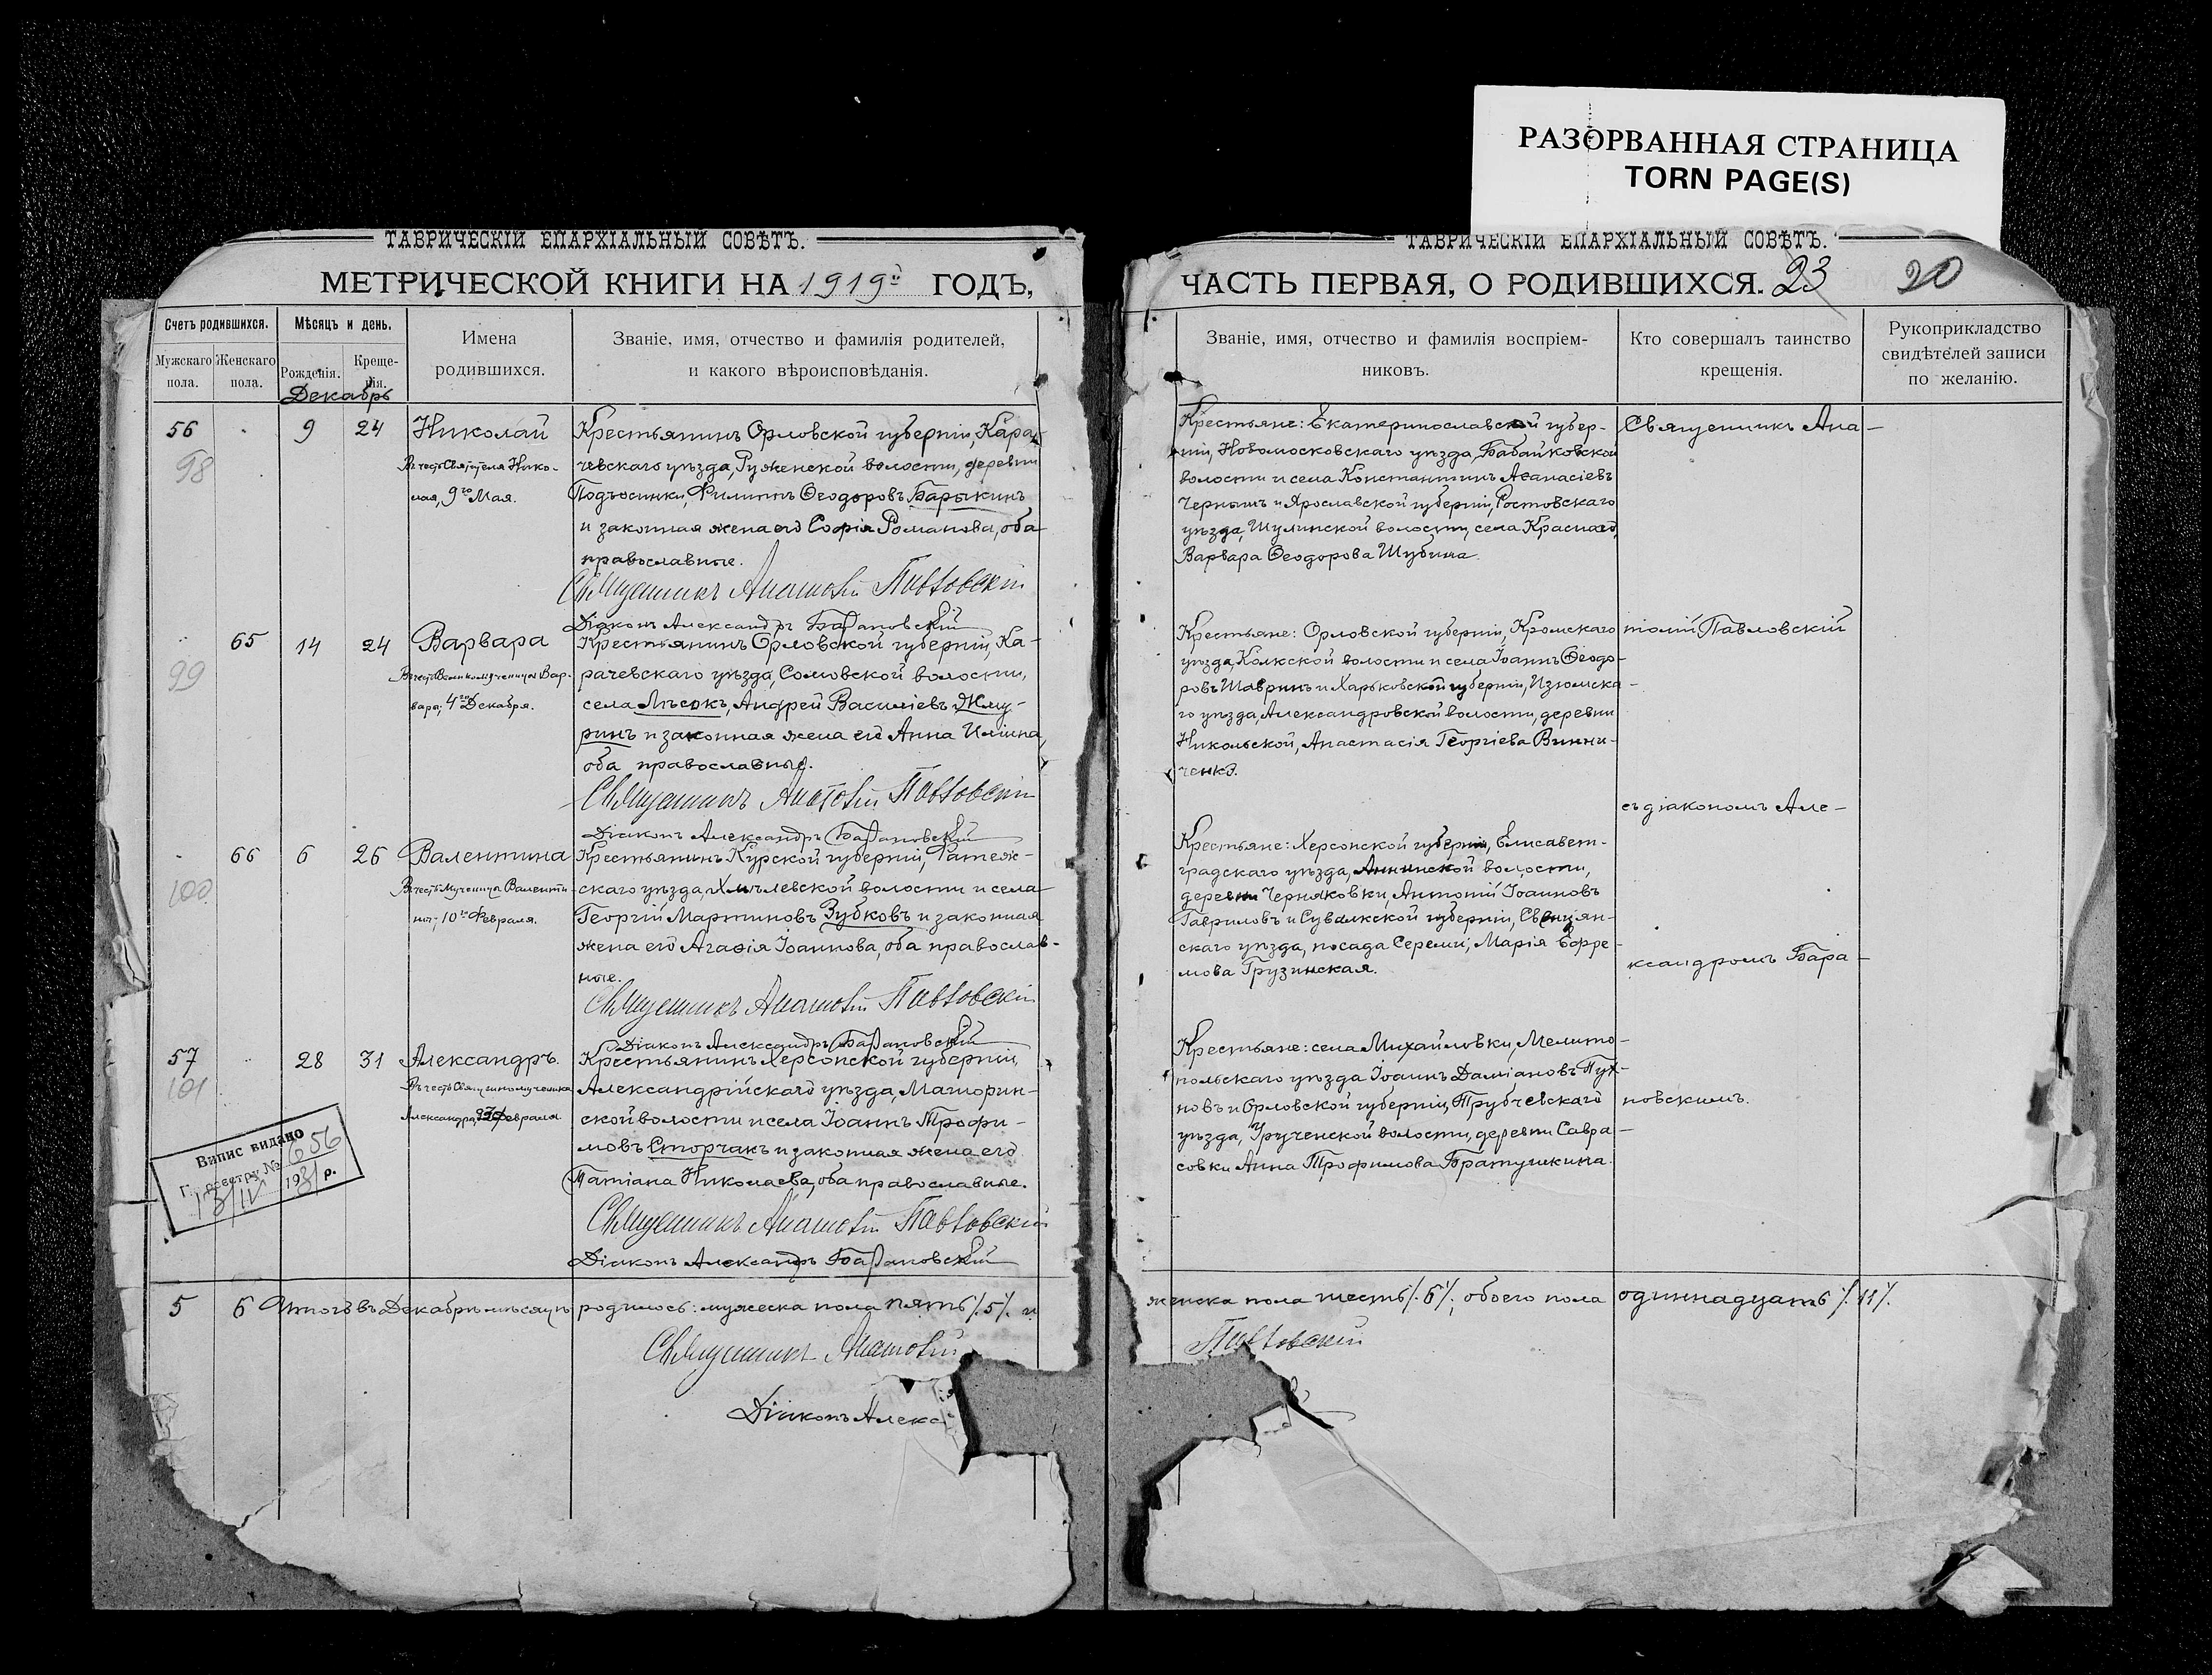 РАЗОРВАННАЯ СТРАНИЦА
TORN PAGE(S)
ТАВРИЧЕСКІЙ ЕПАРХІАЛЬНЫЙ СОВѢТЪ.
МЕТРИЧЕСКОЙ КНИГИ НА 1919й ГОДЪ,
Счетъ родившихся.
Мужскаго пола.
Женскаго пола.
Мѣсяцъ и день.
Рожденія.
Крещенія.
Декабрь
Имена
родившихся.
Званіе, имя, отчество и фамилія родителей,
и какого вѣроисповѣданія.
56
98
9
24
Николай
Въ честь Святителя Нико-
лая, 9го Мая.
Крестьянинъ Орловской губерніи, Кара-
чевскаго уѣзда, Руженской волости, деревни
Подъосинки, Филиппъ Ѳеодоровъ Барыкинъ
и законная жена его Софія Романова, оба
православные.
Священникъ Анатолій Павловскій
Діаконъ Александръ Барановскій
65
99
14
24
Варвара
Въ честь Великомученицы Вар-
вары, 4го Декабря.
Крестьянинъ Орловской губерніи, Ка-
рачевскаго уѣзда, Сомовской волости,
села Лѣсокъ, Андрей Василіевъ Жму-
ринъ и законная жена его Анна Иліина,
оба православные.
Священникъ Анатолій Павловскій
Діаконъ Александръ Барановскій
66
100
6
26
Валентина
Въ честь Мученицы Валенти-
ны, 10го Февраля.
Крестьянинъ Курской губерніи,
скаго уѣзда, Хмѣлевской волости и села
Георгій Мартиновъ Зубковъ и законная
жена его Агаѳія Іоаннова, оба православ-
ные.
Священникъ Анатолій Павловскій
Діаконъ Александръ Барановскій
57
101
28
31
Александръ
Въ честь Священномученика
Александра, Февраля
Крестьянинъ Херсонской губерніи,
Александрійскаго уѣзда,
ской волости и села Іоаннъ Трофи-
мовъ Сторчакъ и законная жена его
Татіана Николаева, оба православные.
Священникъ Анатолій Павловскій
Діаконъ Александръ Барановскій
Випис видано
реєстру № 656
13/IV 1931 р.
5
6
Итого въ Декабрѣ мѣсяцѣ родилось: мужеска пола пять /.5/. и
Священникъ Анатолій
Діаконъ Алекса
ТАВРИЧЕСКІЙ ЕПАРХІАЛЬНЫЙ СОВѢТЪ.
ЧАСТЬ ПЕРВАЯ, О РОДИВШИХСЯ. 23
20
Званіе, имя, отчество и фамилія воспріем-
никовъ.
Кто совершалъ таинство
крещенія.
Рукоприкладство
свидѣтелей записи
по желанію.
Крестьяне: Екатеринославской губер-
ніи, Новомосковскаго уѣзда, Бабайковской
волости и села Константинъ Аѳанасіевъ
Чернышъ и Ярославской губерніи, Ростовскаго
уѣзда, Шулинской волости, села Краснаго,
Варвара Ѳеодорова Шубина.
Крестьяне: Орловской губерніи, Кромскаго
уѣзда, Колкской волости и села Іоаннъ Ѳеодо-
ровъ Шавринъ и Харьковской губерніи, Изюмска-
го уѣзда, Александровской волости, деревни
Никольской, Анастасія Георгіева Винни-
ченко.
Крестьяне: Херсонской губерніи, Елисавет-
градскаго уѣзда, Аннинской волости,
деревни Черняковки, Антоній Іоанновъ
Гавриловъ и Сувалкской губерніи,
скаго уѣзда, посада Середи, Марія Ефре-
мова Грузинская.
Крестьяне: села Михайловки, Мелито-
польскаго уѣзда Іоаннъ Даміановъ
новъ и Орловской губерніи, Трубчевскаго
уѣзда, Урученской волости, деревни Савра-
совки Анна Трофимова Братушкина.
Священникъ Ана-
толій Павловскій
съ діакономъ Але-
ксандромъ Бара-
новскимъ.
женска пола шесть /.6/., обоего пола одиннадцать /.11/.
Павловскій